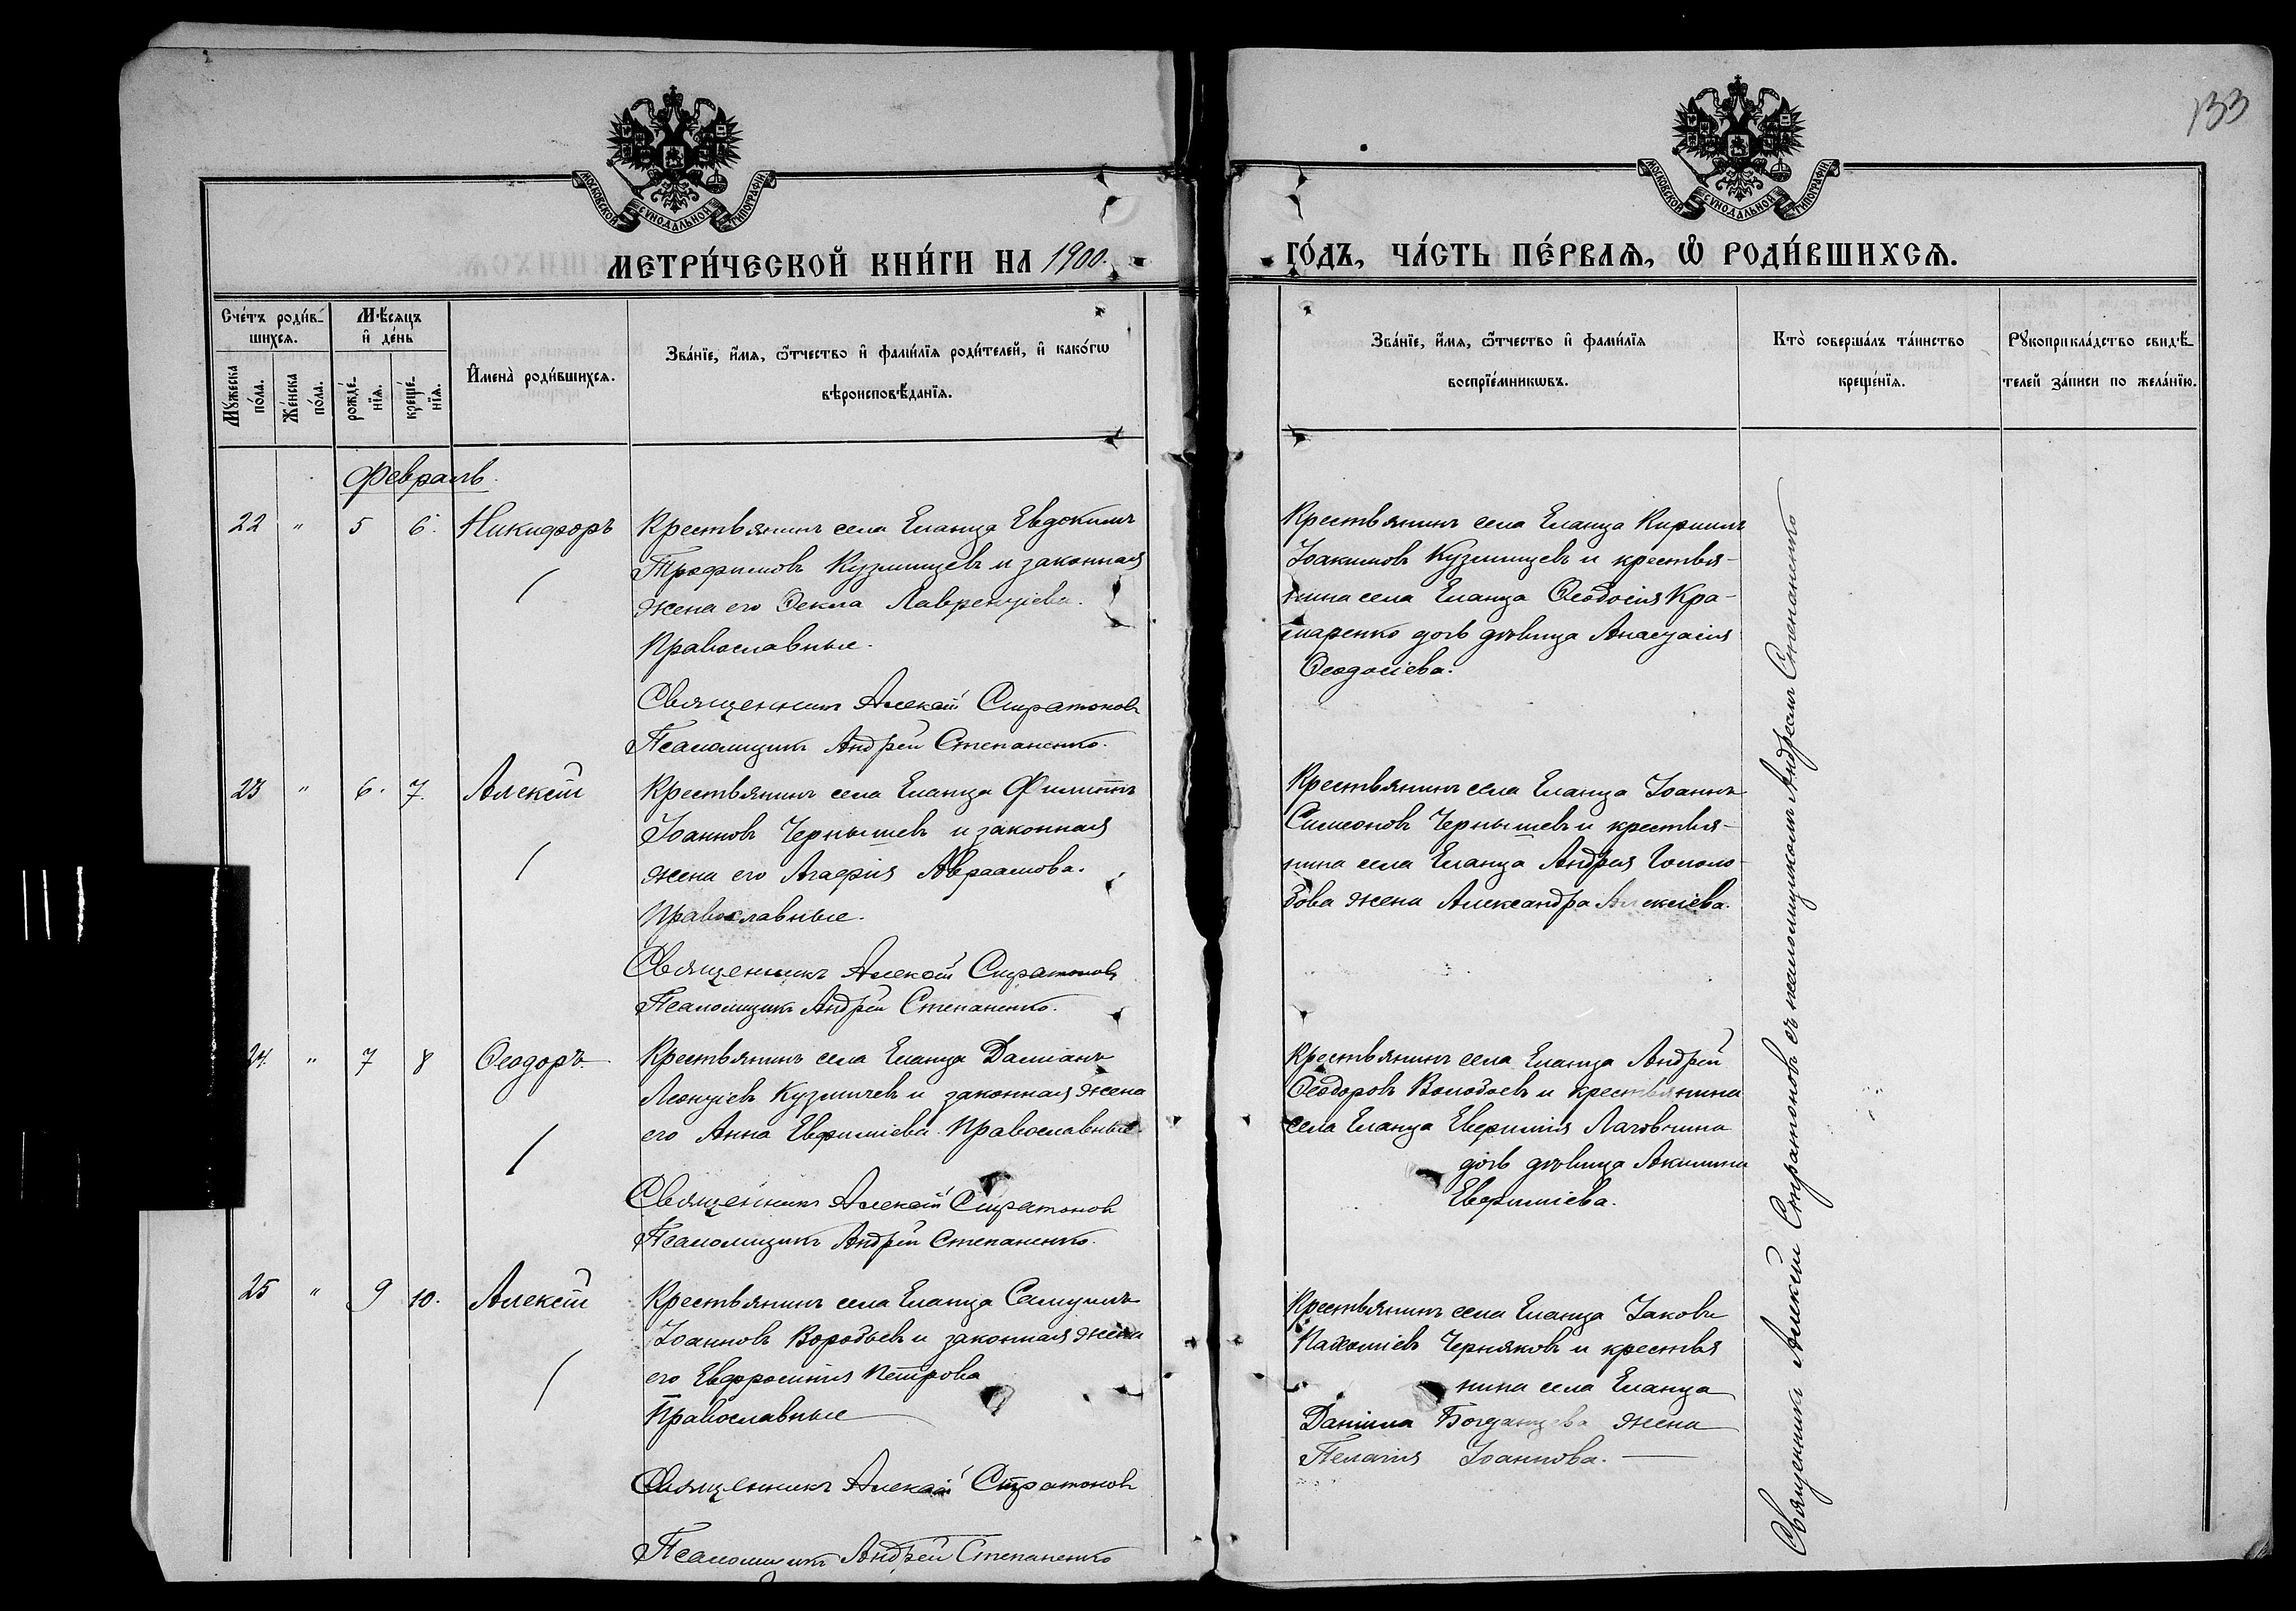 133
МОСКОВСКОЙ СѴНОДАЛЬНОЙ ТИПОГРАФІИ
МОСКОВСКОЙ СѴНОДАЛЬНОЙ ТИПОГРАФІИ
МЕТРИ́ЧЕСКОЙ КНИ́ГИ НА 1900.
ГО́ДЪ, ЧА́СТЬ ПЕ́РВАѦ, Ѡ҆ РОДИ́ВШИХСѦ.
Сче́тъ роди́в-
шихсѧ.
Мꙋ́жеска
по́ла.
Же́нска
по́ла.
Мѣ́сѧцъ
и҆ де́нь
рожде́-
нїѧ.
креще́-
нїѧ.
И҆мена̀ роди́вшихсѧ.
Зва́нїе, и҆́мѧ, ѻ҆́тчество и҆ фами́лїѧ роди́телей, и҆ како́гѡ
вѣроисповѣ́данїѧ.
Зва́нїе, и҆́мѧ, ѻ҆́тчество и҆ фами́лїѧ
воспрїе́мникѡвъ.
Кто̀ соверша́лъ та́инство
креще́нїѧ.
Рꙋкоприкла́дство свидѣ́-
телей за́писи по жела́нїю.
Февраль.
22 " 5 6. Никифоръ
Крестьянинъ села Еланца Евдокимъ
Трофимовъ Кузмищевъ и законная
жена его Ѳекла Лаврентіева.
Православные.
Священникъ Алексій Стратоновъ
Псаломщикъ Андрей Степаненко.
Крестьянинъ села Еланца Кириллъ
Іоакимовъ Кузмищевъ и крестья-
нина села Еланца Ѳеодосія Кра-
маренко дочь дѣвица Анастасія
Ѳеодосіева.
23 " 6. 7. Алексѣй
Крестьянинъ села Еланца Филиппъ
Іоанновъ Чернышевъ и законная
жена его Агафія Авраамова.
Православные.
Священникъ Алексій Стратоновъ
Псаломщикъ Андрей Степаненко.
Крестьянинъ села Еланца Іоаннъ
Симеоновъ Чернышевъ и крестья-
нина села Еланца Андрея Гололо-
бова жена Александра Алексіева.
24. " 7 8 Ѳеодоръ.
Крестьянинъ села Еланца Даміанъ
Леонтіевъ Кузмичевъ и законная жена
его Анна Евфиміева. Православные.
Священникъ Алексій Стратоновъ
Псаломщикъ Андрей Степаненко.
Крестьянинъ села Еланца Андрей
Ѳеодоровъ и крестьянина
села Еланца Евфимія
дочь дѣвица Акилина
Евфиміева.
25 " 9 10. Алексѣй
Крестьянинъ села Еланца Самуилъ
Іоанновъ Воробьевъ и законная жена
его Евфросинія Петрова
Православные
Священникъ Алексій Стратоновъ
Псаломщикъ Андрей Степаненко
Крестьянинъ села Еланца Іаковъ
Пахоміевъ Черняковъ и крестья
нина села Еланца
Даніила Богданцева жена
Пелагія Іоаннова.
Священникъ Алексѣй Стратоновъ съ псаломщикомъ Андреемъ Степаненко